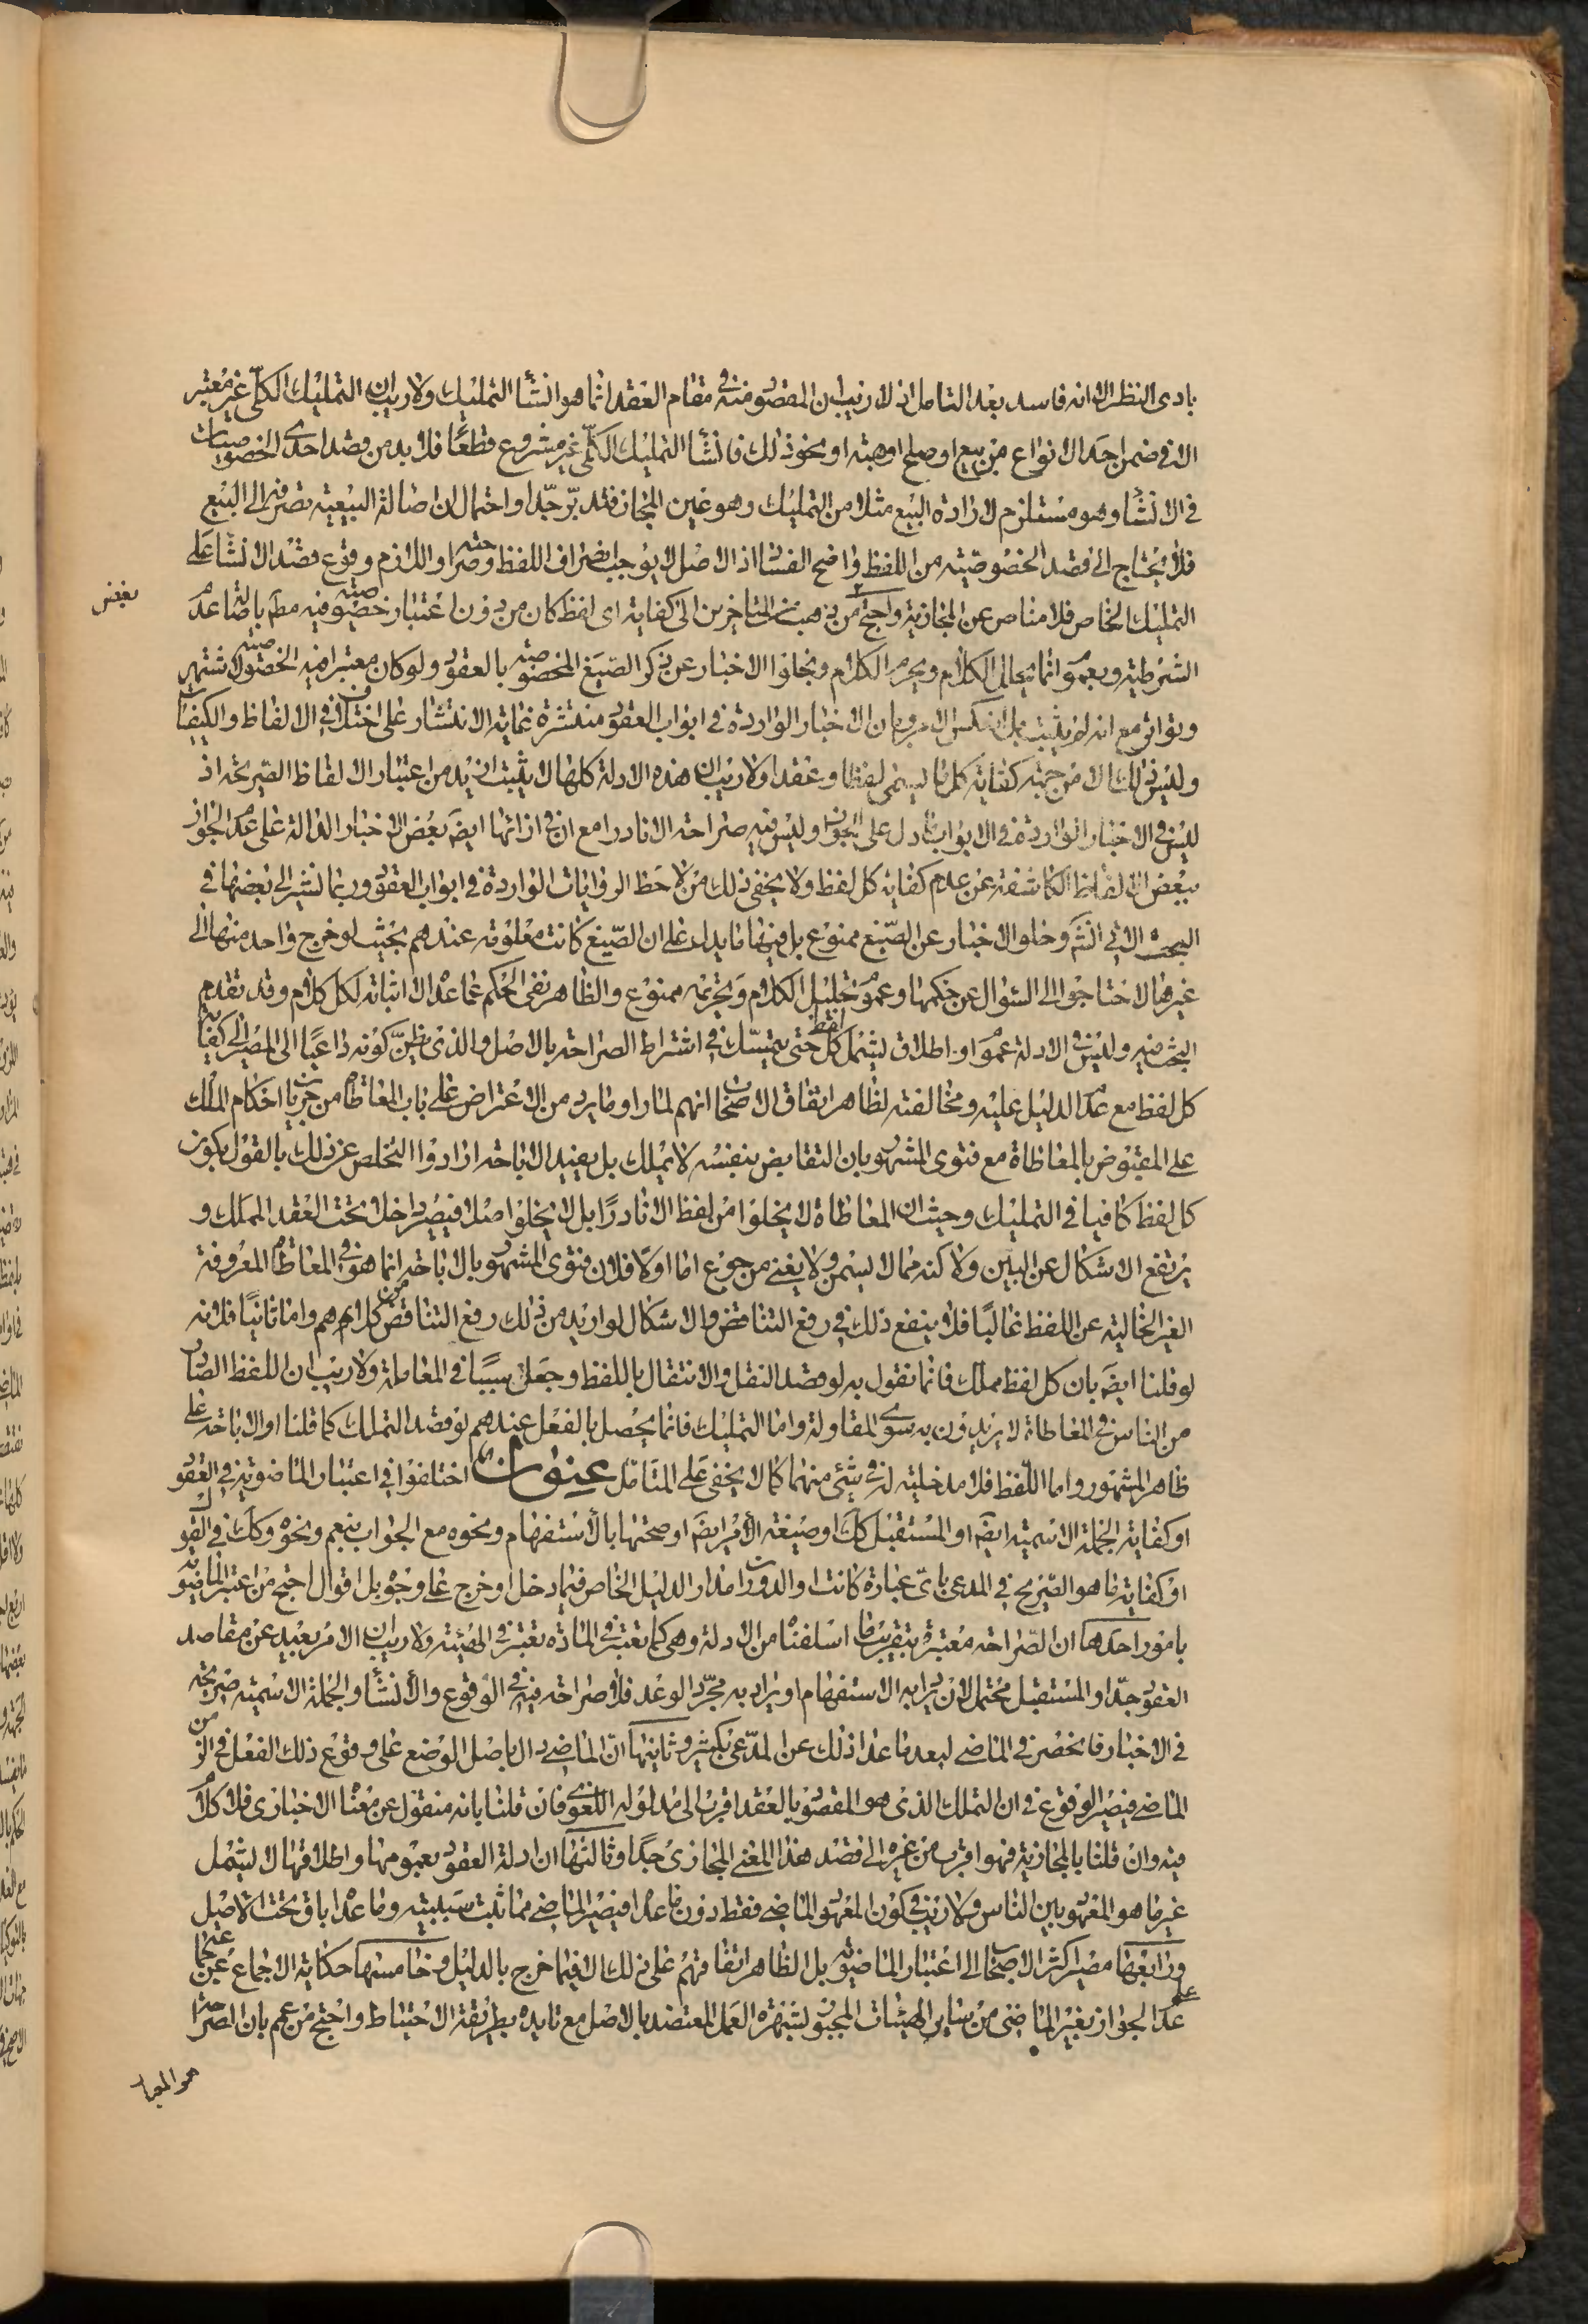 بادى النظر الا انه فاسد بعد التامل اذ لا ريب ان المقصود منه فى مقام العقد انما هو انشأ التمليك ولا ريب ان التمليك الكلّى غير معتبر
الا فى ضمن احد الانواع من بيع او صلح او هبته او نحو ذلك فانشأ التمليك الكلّى غير مشروع قطعًا فلا بد من قصد احدى الخصوصيات
فى الانشأ وهو مستلزم لارادة البيع مثلا من التمليك وهو عين المجاز فتدبّر جّدا واحتمال ان اصالة البيعيته تصرفه الى البيع
فلا يحتاج الى قصد الخصوصيّته من اللفظ واضح الفساد اذ الاصل لا يوجب انصراف اللفظ وصراحته واللازم وقوع قصد الانشأ على
التمليك الخاص فلا مناص عن المجازية واحتج من ذهب من المتاخرين الى كفاية اى لفظ كان من دون اعتبار خصوصيته فيه مطم باصالة عدم
الشرطيته وبعموم انما يحلل الكلام ويحرم الكلام وبخلو الاخبار عن ذكر الصّيغ المخصوصته بالعقود ولو كان معتبرا فيه الخصوصيته لاشتهر
وتواتر مع انه لم يثبت بل انعكس الامر وبان الاخبار الواردة فى ابواب العقود منتشرة غاية الانتشار على اختلاف فى الالفاظ والكيفيات
وليس ذلك الا من جهته كفاية كل ما يسمى لفظا وعقدا ولا ريب ان هذه الادلة كلها لا يثبت ازيد من اعتبار الالفاظ الصّريحته اذ
ليس فى الاخبار الواردة فى الابواب ما دل على الجواز وليس فيه صراحته الا نادرا مع ان فى ازائها ايضً بعض الاخبار الدالة على عدم الجواز
ببعض الالفاظ الكاشفته عن عدم كفاية كل لفظ ولا يخفى ذلك من لاحظ الروايات الواردة فى ابواب العقود وربما نشير الى بعضها فى
البحث الاتى انشَم وخلو الاخبار عن الصّيغ ممنوع بل فيها ما يدل على ان الصّيغ كانت معلومته عندهم بحيث لو خرج واحد منها الى
غيرها لاحتاجوا الى السّوال عن حكمها وعموم تحليل الكلام وتحريمه ممنوع والظاهر نفى الحكم عما عداه لا اثباته لكل كلام وقد تقدم
البحث فيه وليس فى الادلة عموم او اطلاق يشمل كل لفظ حتى يتمسّك فى اشتراط الصراحته بالاصل والذى يظنّ كونه داعيًا الى المصير الى كفاية
كل لفظ مع عدم الدليل عليه ومخالفته لظاهر اتفاق الاصحاب انهم لما راوا ما يرد من الاعتراض على باب المعاطاة من جريان احكام الملك
على المقبوض بالمعاطاة مع فتوى المشهور بان التقابض بنفسه لا يملك بل يفيد الاباحته ارادوا التخلص عن ذلك بالقول بكون
كل لفظ كافيا فى التمليك وحيث ان المعاطاة لا يخلوا من لفظ الا نادرًا بل لا يخلوا اصلا فيصير داخلا تحت العقد المملك و
يرتفع الاشكال عن البين ولاكنه مما لا يسمن ولا يغنى من جوع اما اولًا فلان فتوى المشهور بالاباحته انما هو فى المعاطاة المعروفة
الغير الخالية عن اللفظ غالبًا فلا ينفع ذلك فى رفع التناقض والاشكال لو اريد من ذلك رفع التناقض من كلامهم واما ثانيًا فلانه
لو قلنا ايضً بان كل لفظ مملك فانما نقول به لو قصد النقل والانتقال باللفظ وجعل سببًا فى المعاملة ولا ريب ان اللفظ الصادر
من الناس فى المعاطاة لا يريدون به سوى المقاولة واما التمليك فانما يحصل بالفعل عندهم لو قصد التملك كما قلنا او الاباحته على
ظاهر المشهور واما اللّفظ فلا مدخلية له فى شئ منهما كما لا يخفى على المتامّل عنوان اختلفوا فى اعتبار الماضوية فى العقود
او كفاية الجملة الاسمية ايضً او المستقبل كك او صيغة الامر ايضً او صحتها بالاستفهام ونحوه مع الجواب بنعم ونحوه وكك فى القبول
او كفاية ما هو الصّريح فى المدعى باىّ عبارة كانت او الدوران مدار الدليل الخاص فيما دخل او خرج على وجوه بل اقوال احتج من اعتبر الماضوية
بامور احدها ان الصّراحته معتبرة بتقريب ما اسلفناه من الادلة وهى كما تعتبر فى المادة تعتبر فى الهيئته ولا ريب ان الامر بعيد عن مقاصد
العقود جدّا والمستقبل محتمل لان يراد به الاستفهام او يراد به مجرّد الوعد فلا صراحته فيه فى الوقوع والانشأ والجملة الاسميته صريحته
فى الاخبار فانحصر فى الماضى لبعد ما عدا ذلك عن المدّعى بكثير وثانيها انّ الماضى دال باصل الوضع على وقوع ذلك الفعل فى الزمن
الماضى فيصير الوقوع فى ان التملك الذى هو المقصود بالعقد اقرب الى مدلوله اللّغوى فان قلنا بانه منقول عن معناه الاخبارى فلا كلام
فيه وان قلنا بالمجازية فهو اقرب من غيره الى قصد هذا المعنى المجازى جدًا وثالثها ان ادلة العقود بعمومها واطلاقها لا يشمل
غير ما هو المعهود بين الناس ولا ريب فى كون المعهود الماضى فقط دون ما عداه فيصير الماضى مما ثبت سببيته وما عداه باق تحت الاصل
ورابعها مصير اكثر الاصحاب الى اعتبار الماضويّة بل الظاهر اتفاقهم على ذلك الا فيما خرج بالدليل وخامسها حكاية الاجماع عن جماعة
على عدم الجواز بغير الماضى من ساير الهيئات المجبور بشهرة العمل المعتضد بالاصل مع تاييده بطريقة الاحتياط واحتج من عمم بان الصراحة
هو المعيار